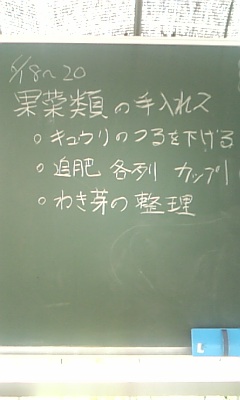 5/18〜20
果菜類の手入れ2
○ キュウリのつるを下げる
○ 追肥 各列 カップ1
○ わき芽の整理